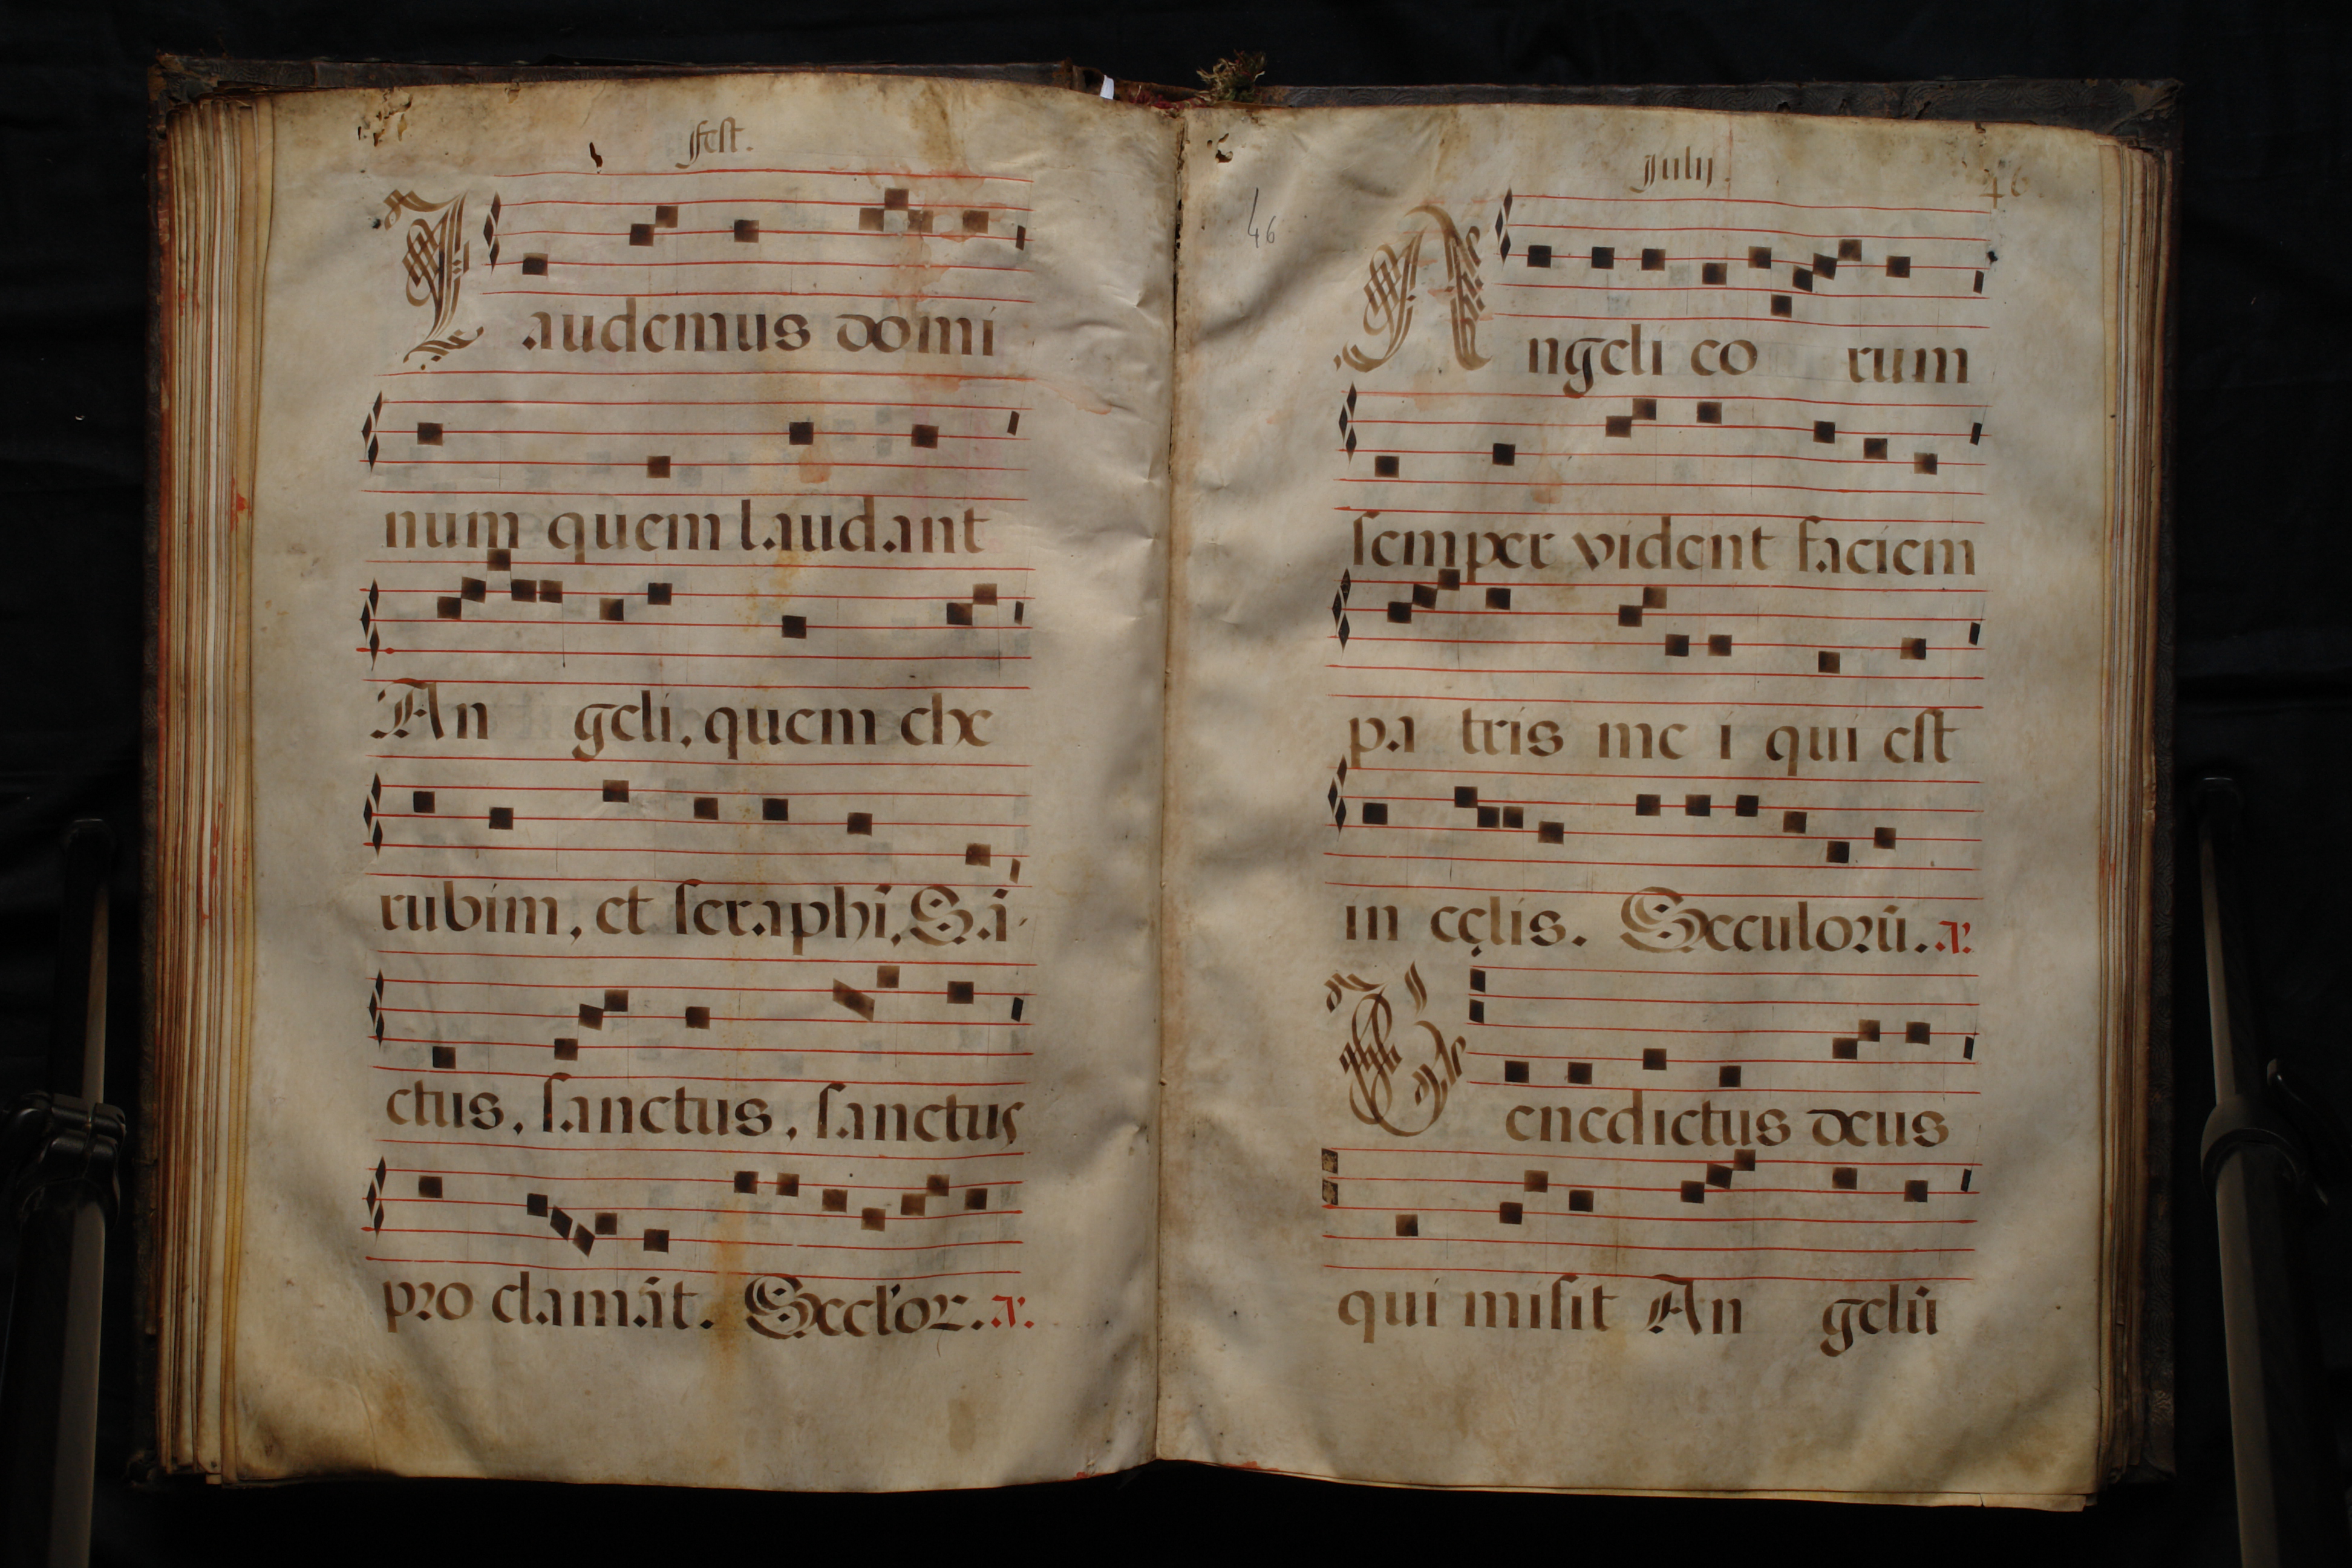 fest.
Laudemus domi
num quem laudant
An geli, quem che
rubim, et seraphī, Sā
ctus, sanctus, sanctus
pro clamāt. Seclor. A.
July.
46
46
Angeli eo rum
semper vident faciem
pa tris me i qui est
in cęlis. Seculorū. A.
Benedictus deus
qui misit An gelū